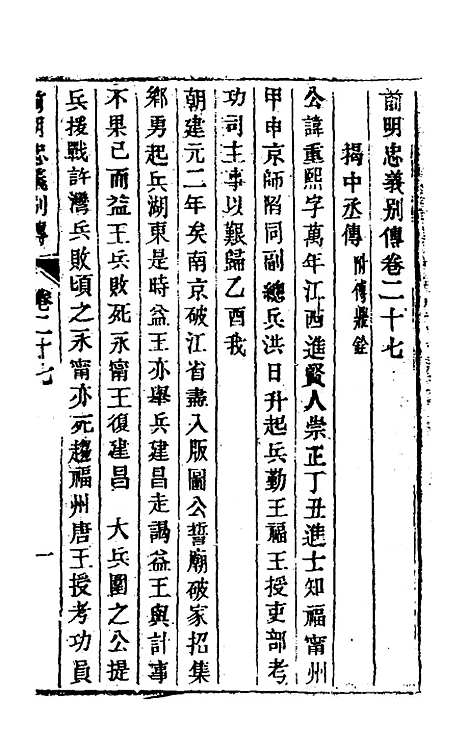 前明忠義别傳卷二十七
揭中丞傳 附傅鼎銓
公諱重熙字萬年江西進賢人崇正丁丑進士知福甯州
甲申京師陷同副總兵洪日升起兵勤王福王授吏部考
功司主事以艱歸乙酉我
朝建元二年矣南京破江省盡入版圖公誓廟破家招集
鄉勇起兵湖東是時益王亦舉兵建昌走謁益王與計事
不果已而益王兵敗死永甯王復建昌 大兵圍之公提
兵援戰許灣兵敗頃之永甯亦死趨福州唐王授考功員
前明忠義别傳 卷二十七 一